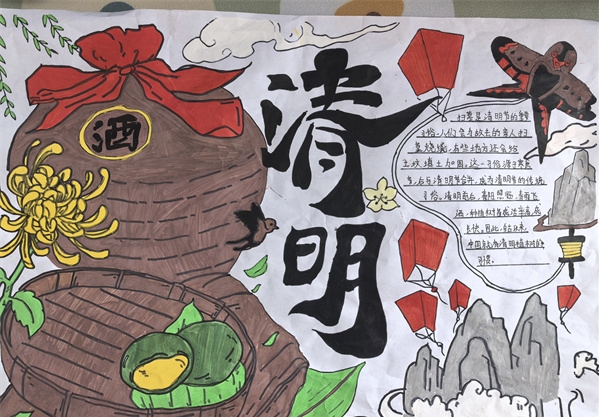 酒
清
明
扫墓是清明节的重要
习俗,人们会为故去的亲人扫
墓烧纸,有些地方还会给
主坟填土加固。这一习俗源于寒食
节,后与清明节合并,成为清明节的传统
习俗。清明前后,春阳照临,春雨飞
洒,种植树苗成活率高,成
长快。因此,自古以来,
中国就有清明植树的
习惯。